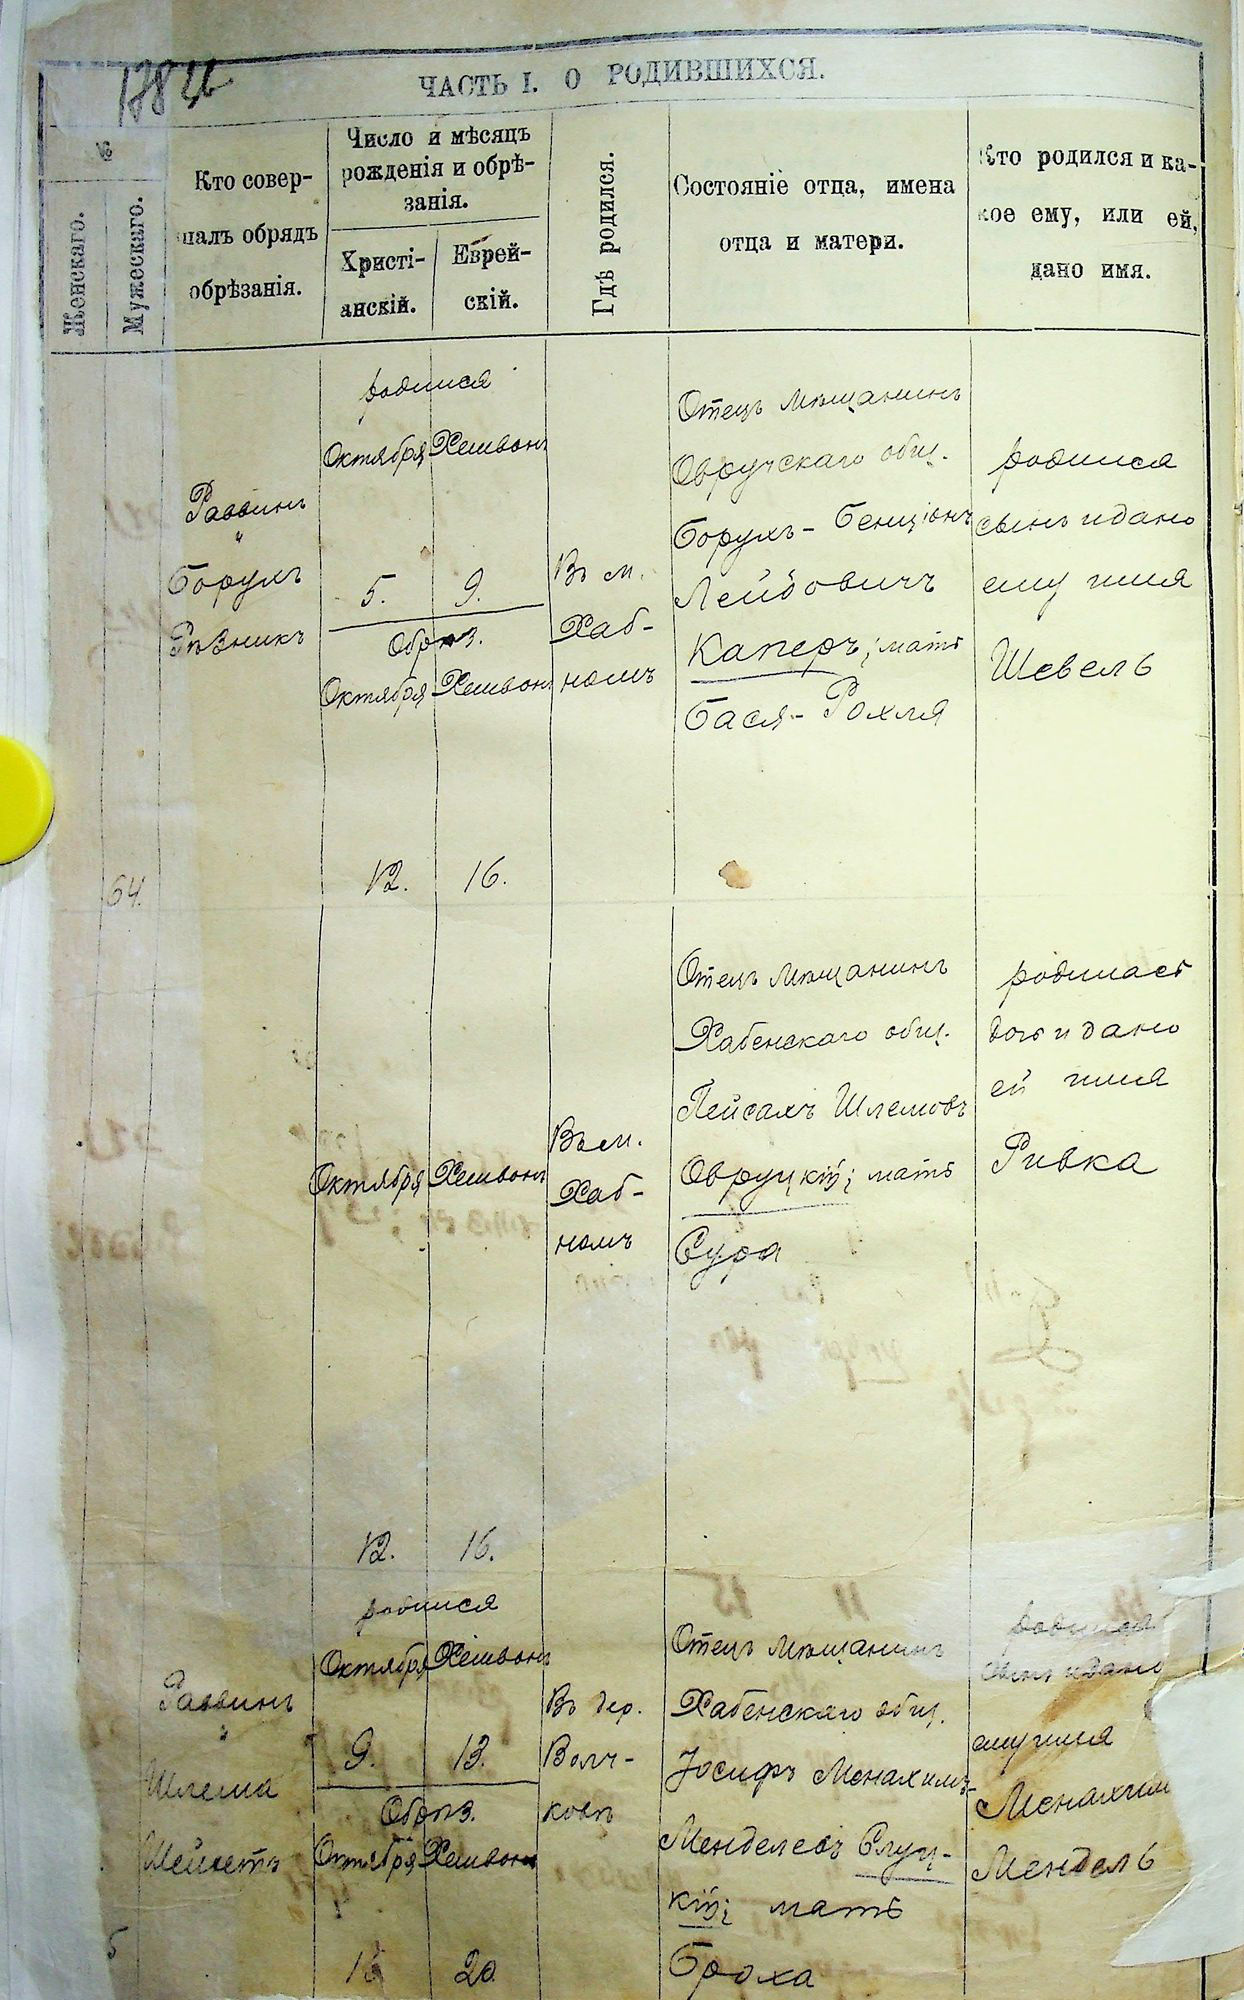 ЧАСТЬ I. О РОДИВШИХСЯ.
№
Женскаго.
Мужескаго.
Кто совер-
шалъ обрядъ
обрѣзанія.
Число и мѣсяцъ
рожденія и обрѣ-
занія.
Христі-
анскій.
Еврей-
скій.
Гдѣ родился.
Состояніе отца, имена
отца и матери.
Кто родился и ка-
кое ему, или ей,
дано имя.
64.
Раввинъ
"
Борухъ
Рѣзникъ
родился
Октября Хешвонъ
5. 9.
Обрѣз.
Октября Хешвонъ
12. 16.
Въ м.
Хаб-
номъ
Отецъ мѣщанинъ
Овручскаго общ.
Борухъ-Бенціонъ
Лейбовичъ
Каперъ; мать
Бася-Рохля
родился
сынъ и дано
ему имя
Шевель
Октября Хешвонъ
12. 16.
Въ м.
Хаб-
номъ
Отецъ мѣщанинъ
Хабенскаго общ.
Пейсахъ Шлемовъ
Овруцкій; мать
Сура
родилась
дочь и дано
ей имя
Ривка
Раввинъ
"
Шлема
родился
Октября Хешвонъ
9. 13.
Обрѣз.
Октября Хешвонъ
20
Въ дер.
Волч-
ковѣ
Отецъ мѣщанинъ
Хабенскаго общ.
Іосифъ Менахимъ-
Менделевъ Слуц-
кій; мать
Броха
родился
сынъ и дано
ему имя
Менахим
Мендель